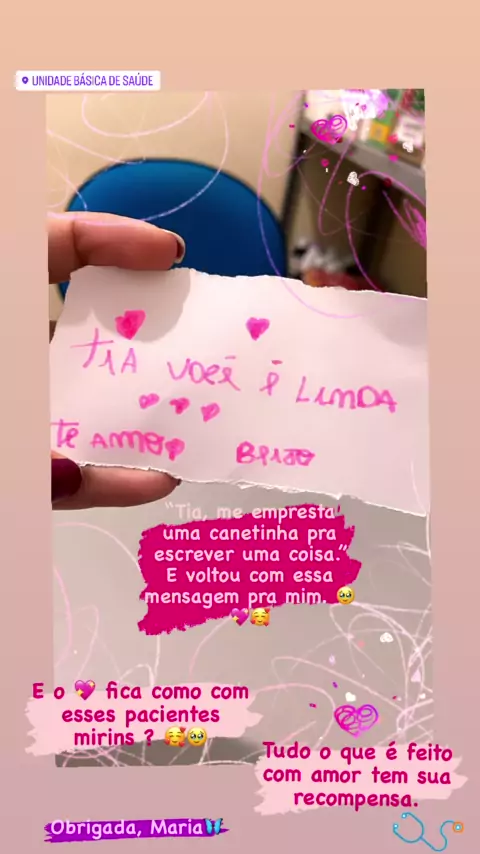 UNIDADE BÁSICA DE SAÚDE
TIA VOCÊ É LINDA
TE AMO BEIJO
"Tia, me empresta
uma canetinha pra
escrever uma coisa."
E voltou com essa
mensagem pra mim. 🥹
💖🥰
E o 💖 fica como com
esses pacientes
mirins ? 🥰🥹
Tudo o que é feito
com amor tem sua
recompensa.
Obrigada, Maria🦋